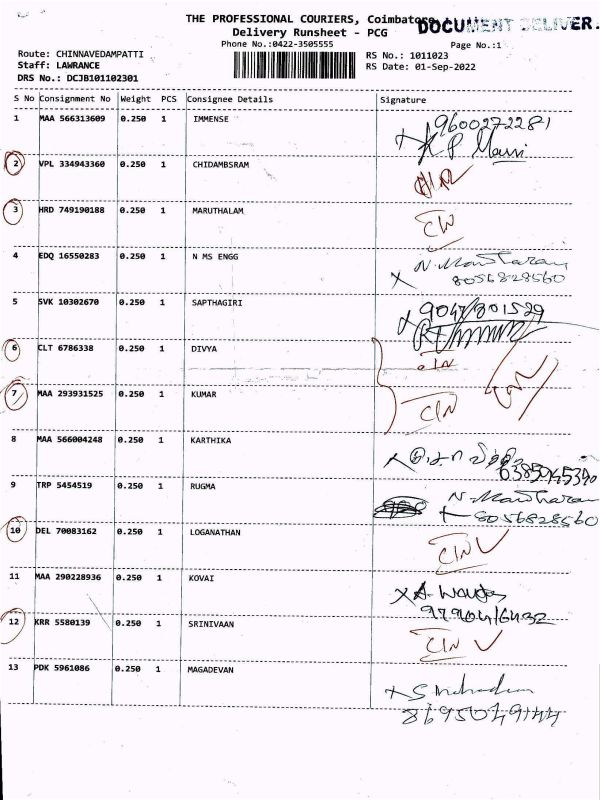 THE PROFESSIONAL COURIERS, Coimbatore
DOCUMENT DELIVER.
Delivery Runsheet - PCG
Phone No.:0422-3505555
Page No.:1
Route: CHINNAVEDAMPATTI
RS No.: 1011023
Staff: LAWRANCE
RS Date: 01-Sep-2022
DRS No.: DCJB101102301
S No Consignment No Weight PCS Consignee Details Signature
1 MAA 566313609 0.250 1 IMMENSE 9600272281
2 VPL 334943360 0.250 1 CHIDAMBSRAM
3 HRD 749190188 0.250 1 MARUTHALAM
4 EDQ 16550283 0.250 1 N MS ENGG 8056828560
5 SVK 10302670 0.250 1 SAPTHAGIRI
6 CLT 6786338 0.250 1 DIVYA
7 MAA 293931525 0.250 1 KUMAR
8 MAA 566004248 0.250 1 KARTHIKA
9 TRP 5454519 0.250 1 RUGMA 8056828560
10 DEL 70083162 0.250 1 LOGANATHAN
11 MAA 290228936 0.250 1 KOVAI
12 KRR 5580139 0.250 1 SRINIVAAN
13 PDK 5961086 0.250 1 MAGADEVAN